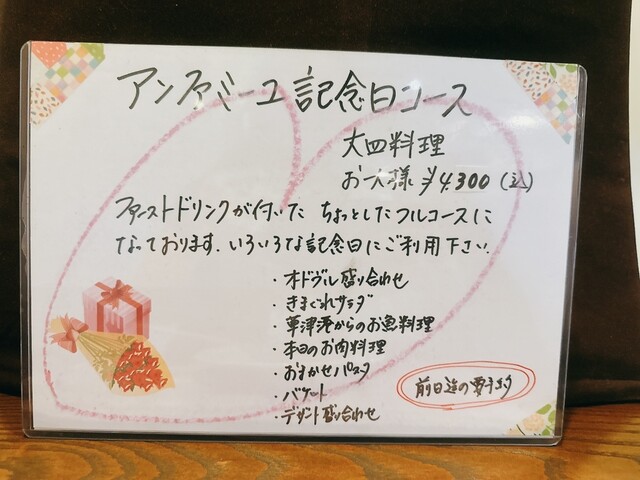 アンファミーユ記念日コース
大皿料理
お一人様 ¥4.300(込)
ファーストドリンクが付いた ちょっとしたフルコースに
なっております. いろいろな記念日にご利用下さい.
・オードブル盛り合わせ
・きまぐれサラダ
・草津港からのお魚料理
・本日のお肉料理
・おまかせパスタ
・バケット
・デザート盛り合わせ
前日迄の要予約